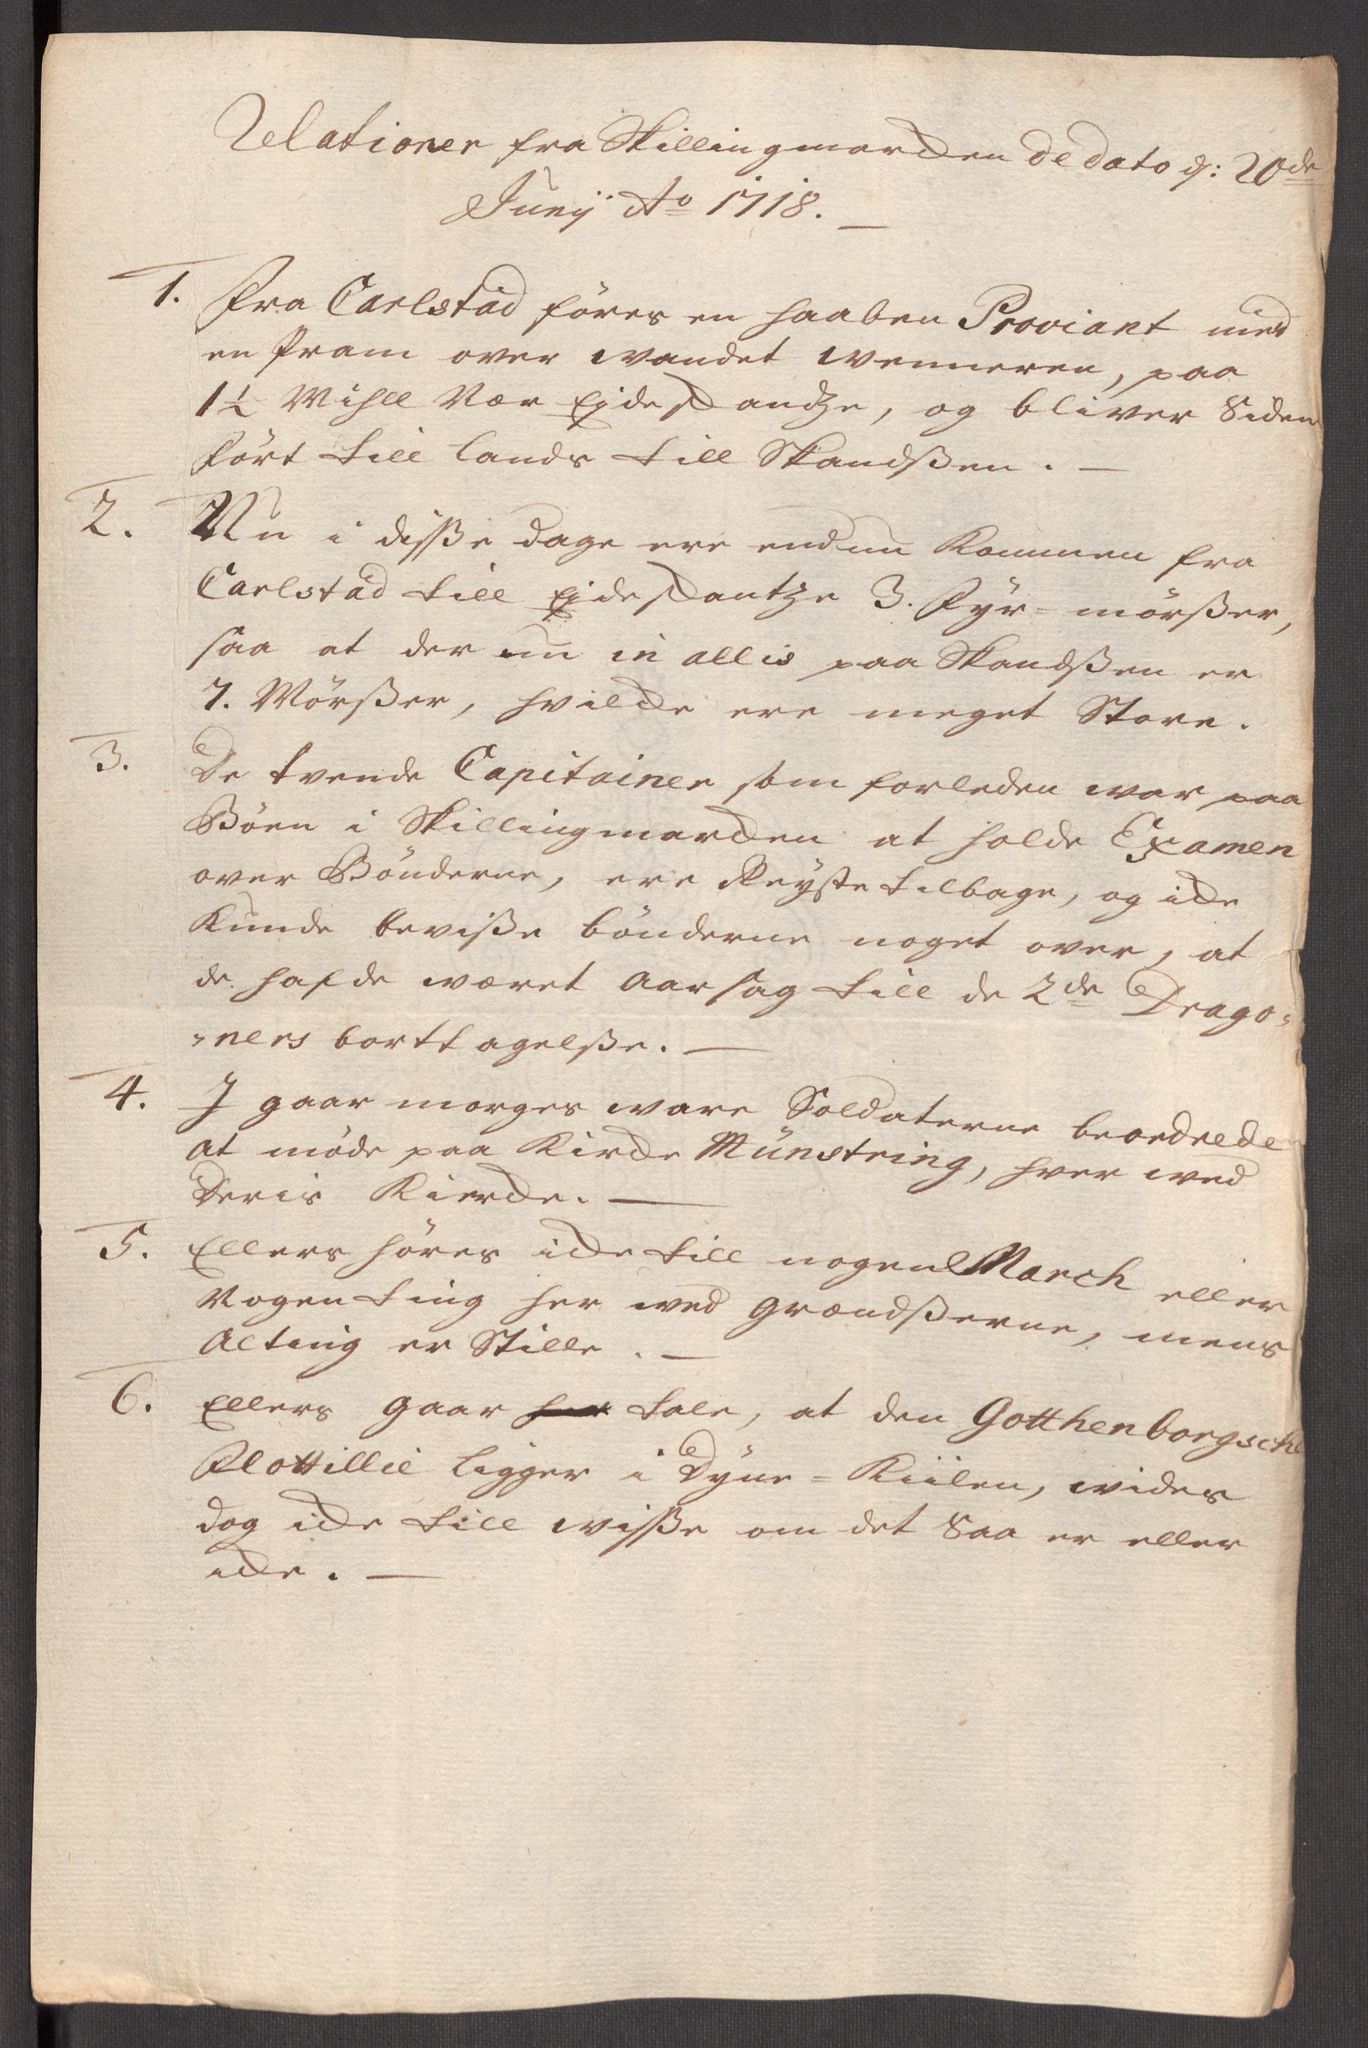 Relationer fra Skillingmarcken de dato d: 20de
Junij Ao 1718.
1. Fra Carlstad föres en haaben Proviant med
en Pram over wandet Wenneren, paa
1¼ Mihll Nær Ejdeskandtze, og bliver Siden
fört till lands till Skandßen.
2. Nu i disße dage ere endnu Kommen fra
Carlstad till Ejdeskantze 3. Fyr-mörßer,
saa at der nu in allis paa Skandßen er
7. Mörßer, hvilcke ere meget Store.
3. De tvende Capitainer som forleden war paa
Böen i Skillingmarcken at holde Examen
over Bönderne, ere Reyste tilbage, og icke
Kunde bevisße bönderne noget over, at
de hafde wæret aarsag till de 2de Drago-
-ners borttagelße.
4. I gaar morges ware Soldaterne beordrede
at möde paa Kircke Münstring, hver wed
deris Kiercke.
5. Ellers höres icke till nogen March eller
Nogen ting her wed Grændßerne, mens
alting er Stille.
6. Ellers gaar her tale, at den Gotthenborgsche
Flottillie ligger i Dyne-Kiilen, wides
dog icke till wisße om det Saa er eller
icke.